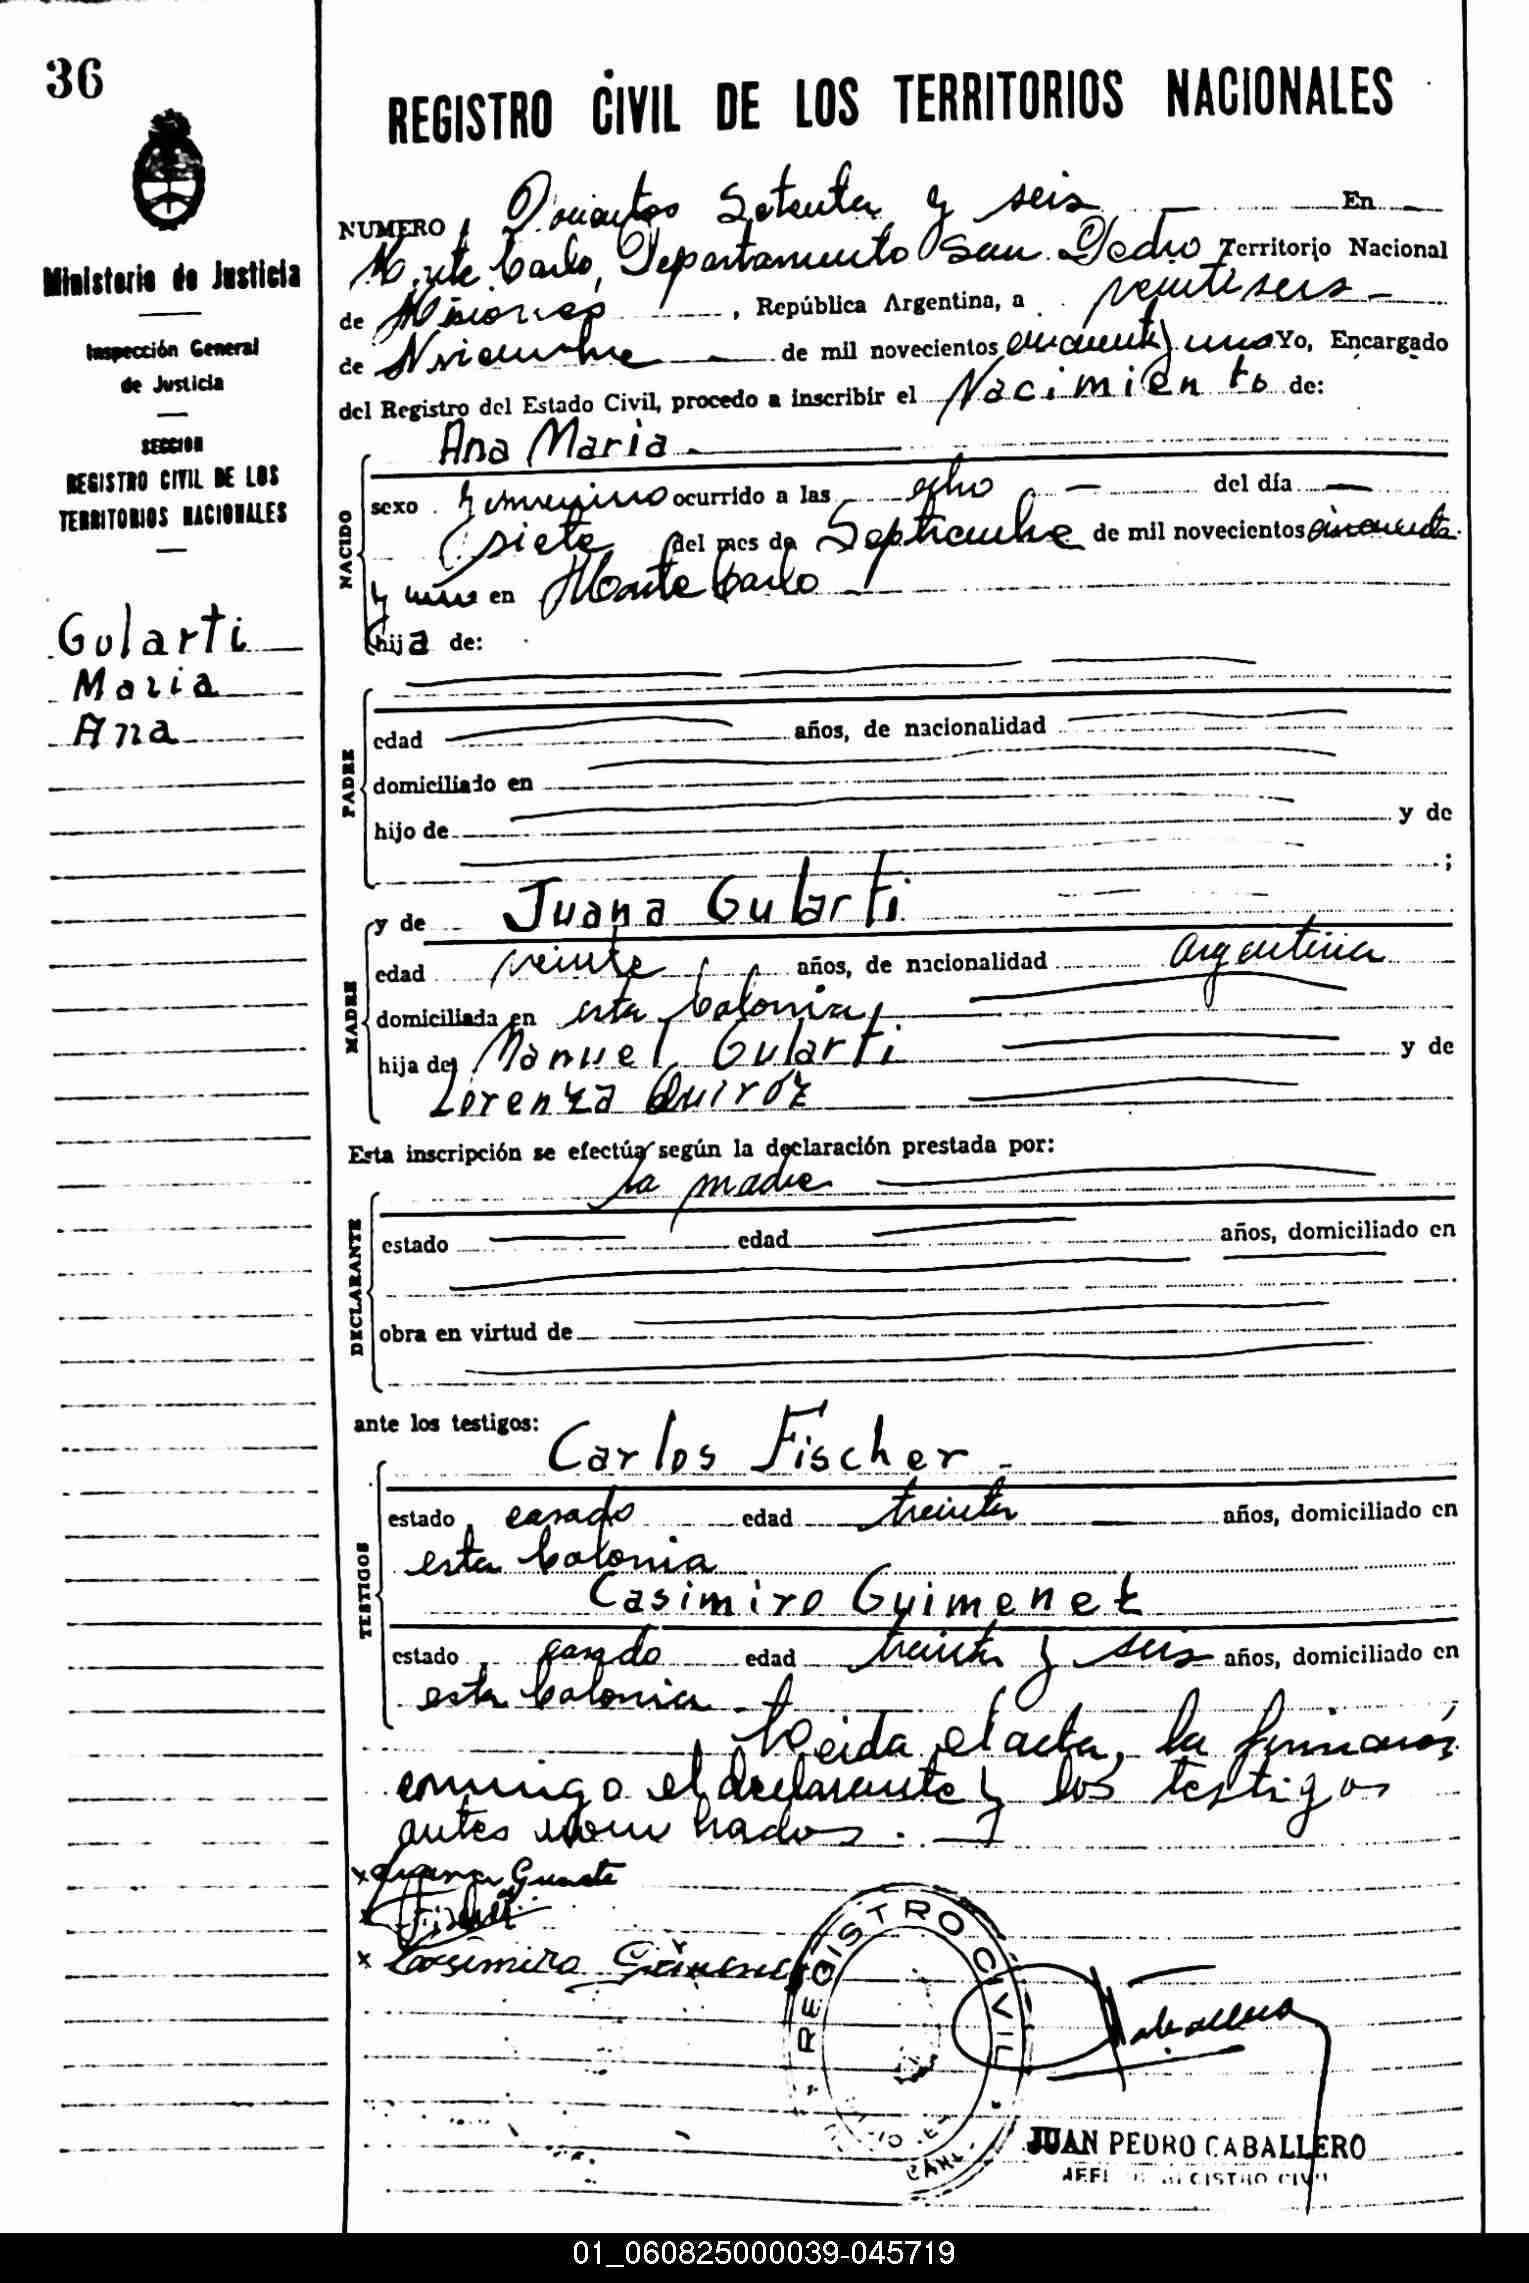 36
REGISTRO CIVIL DE LOS TERRITORIOS NACIONALES
Ministerio de Justicia
Inspección General
de Justicia
SECCION
REGISTRO CIVIL DE LOS
TERRITORIOS NACIONALES
Gularti
Maria
Ana
NUMERO Dosientos Setenta y seis En
Monte Carlo, Departamento San Pedro Territorio Nacional
de Misiones, República Argentina, a veintiseis
de Noviembre de mil novecientos cincuenta y uno Yo, Encargado
del Registro del Estado Civil, procedo a inscribir el Nacimiento de:
NACIDO
Ana Maria
sexo femenino ocurrido a las ocho del día
siete del mes de Septiembre de mil novecientos cincuenta
y uno en Monte Carlo
hija de:
PADRE
edad años, de nacionalidad
domiciliado en
hijo de y de
;
MADRE
y de Juana Gularti
edad veinte años, de nacionalidad argentina
domiciliada en esta Colonia
hija de Manuel Gularti y de
Lorenza Quiróz
Esta inscripción se efectúa según la declaración prestada por:
la madre
DECLARANTE
estado edad años, domiciliado en
obra en virtud de
ante los testigos:
TESTIGOS
Carlos Fischer
estado casado edad treinta años, domiciliado en
esta Colonia
Casimiro Guimenez
estado casado edad treinta y seis años, domiciliado en
esta Colonia
Leida el acta, la firmaron
conmigo el declarante y los testigos
antes nombrados.
x Juana
x Fischer
x Casimiro Gimenez
REGISTRO CIVIL
Caballero
JUAN PEDRO CABALLERO
JEFE DE REGISTRO CIVIL
01_060825000039-045719